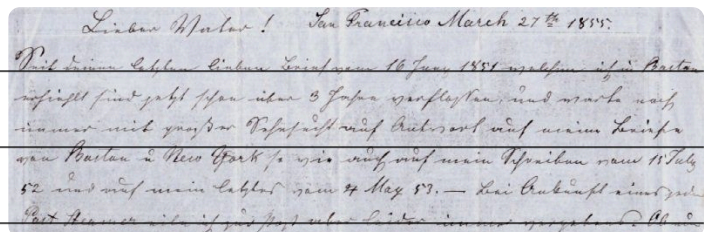 Lieber Vater! San Francisco March 27th 1855.
Seit deinem letzten lieben Brief vom 16 Juny 1851 welchen ich in Boston
erhielt sind jetzt schon über 3 Jahre verflossen, und warte noch
immer mit großer Sehnsucht auf Antwort auf meine Briefe
von Boston u New York so wie auch auf mein Schreiben vom 15 July
52 und auf mein letztes vom 4 May 53. — Bei Ankunft eines jeden
Post Steamer eile ich zur Post aber leider immer vergebens. Ob